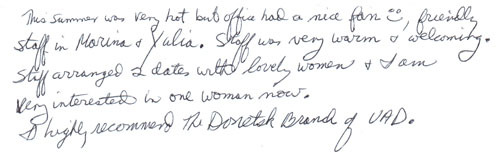 This summer was very hot but office had a nice fan ☺, friendly
staff in Marina & Yulia. Staff was very warm & welcoming.
Staff arranged 2 dates with lovely women & I am
very interested in one woman now.
I highly recommend The Donetsk Branch of UAD.